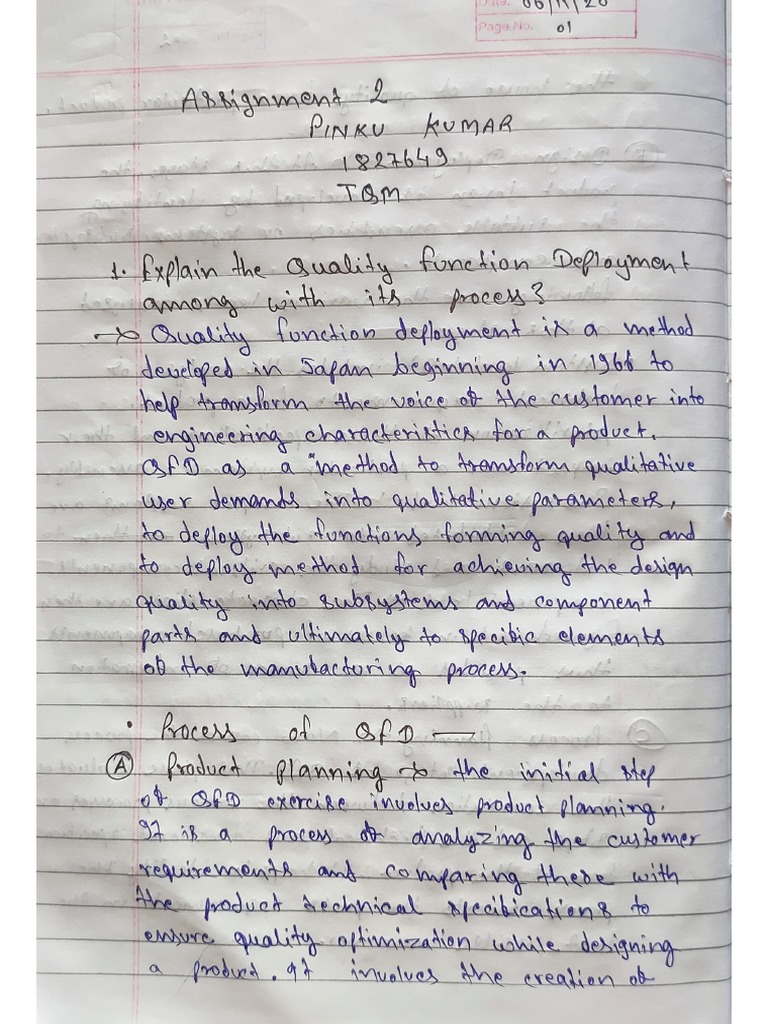 Date. 06/11/20
Page No. 01
Assignment 2
PINKU KUMAR
1827649
TQM
1. Explain the Quality function Deployment
among with its process?
→ Quality function deployment is a method
developed in Japan beginning in 1966 to
help transform the voice of the customer into
engineering characteristics for a product.
QFD as a "method to transform qualitative
user demands into qualitative parameters,
to deploy the functions forming quality and
to deploy method for achieving the design
quality into subsystems and component
parts and ultimately to specific elements
of the manufacturing process.
• Process of QFD —
Ⓐ Product planning → the initial step
of QFD exercise involves product planning.
It is a process of analyzing the customer
requirements and comparing these with
the product technical specifications to
ensure quality optimization while designing
a product. It involves the creation of